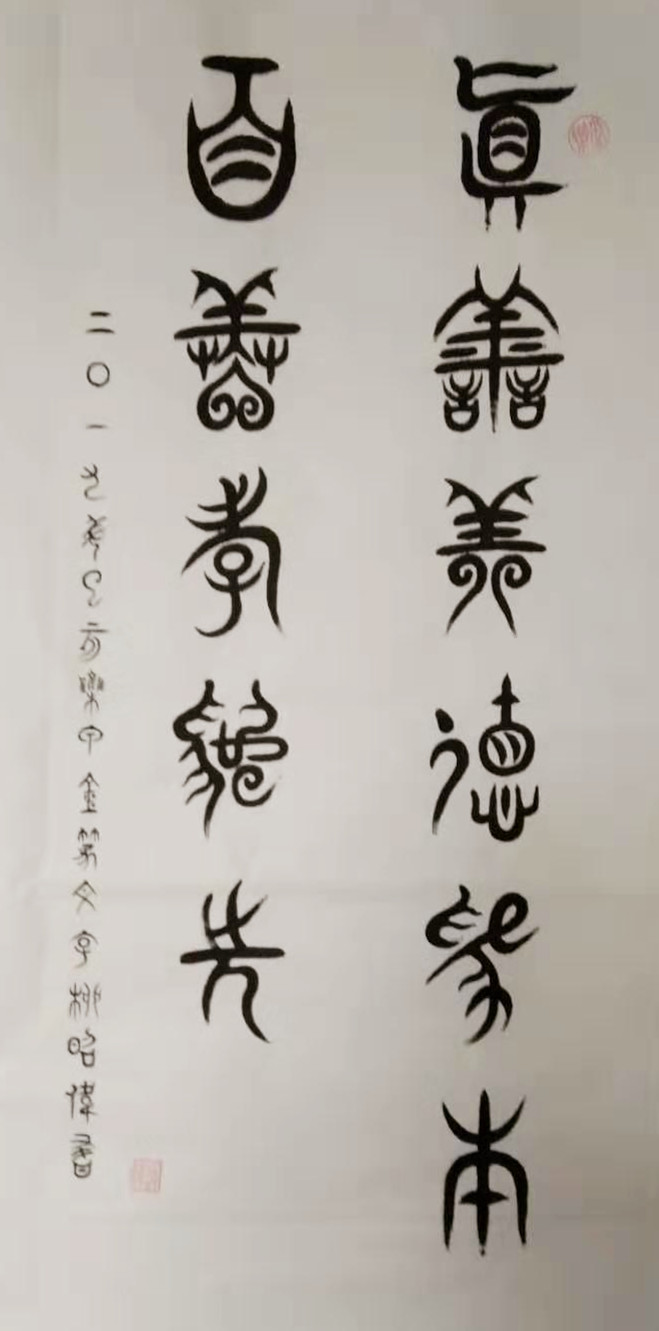 眞善美德為本
百善孝為先
二〇一九年己亥樂甲金篆文字昭偉書